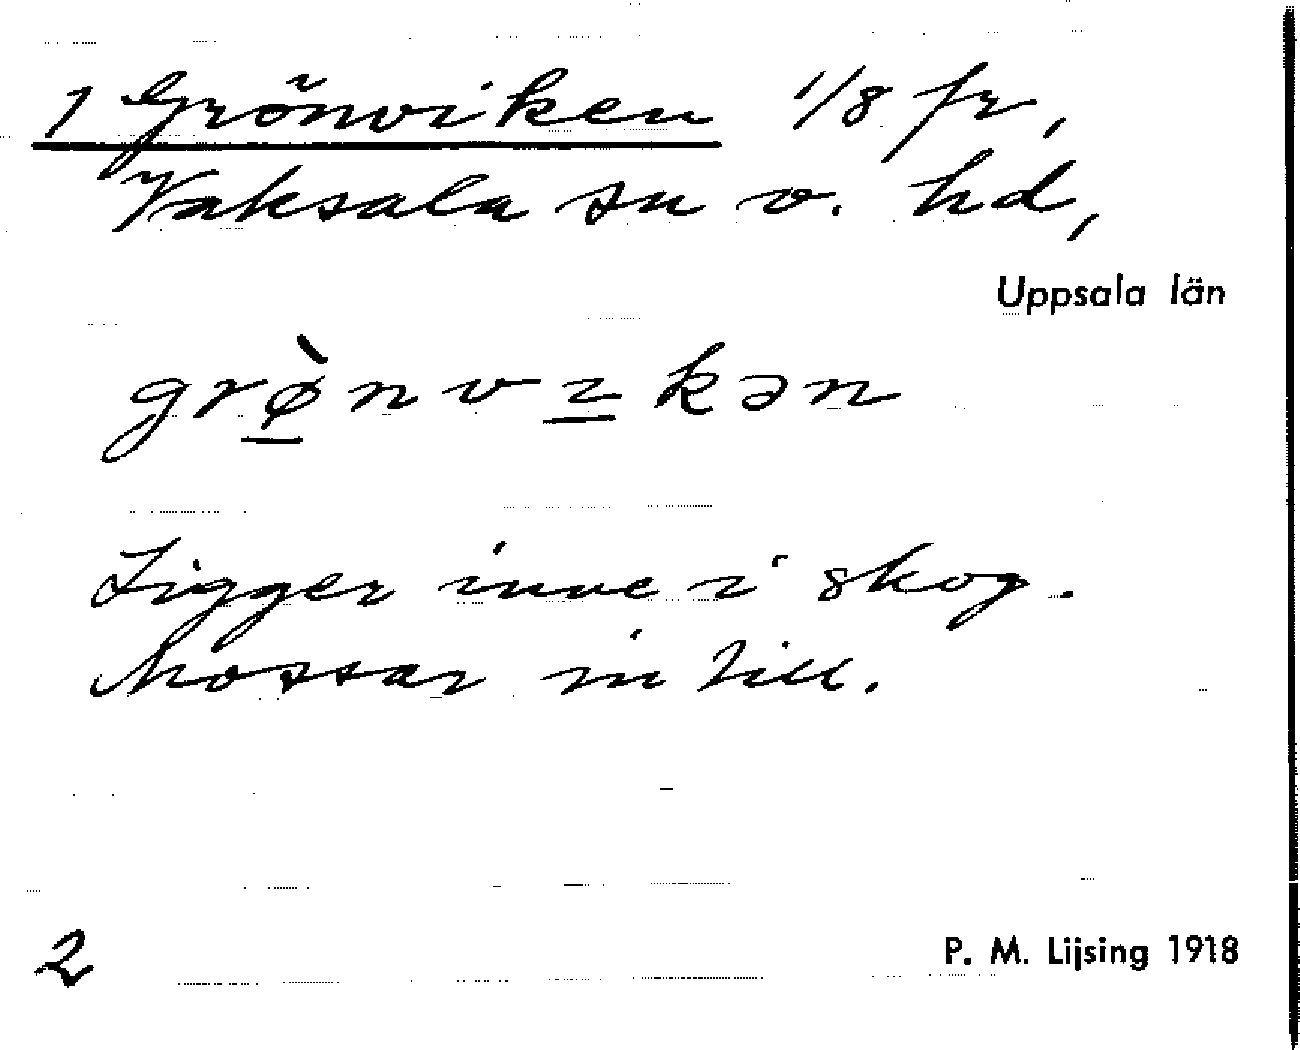 1 Grönviken 1/8 fr,
Vaksala sn o. hd,
Uppsala län
grø̀nvıkən
Ligger inne i skog.
Mossar in till.
2
P. M. Lijsing 1918